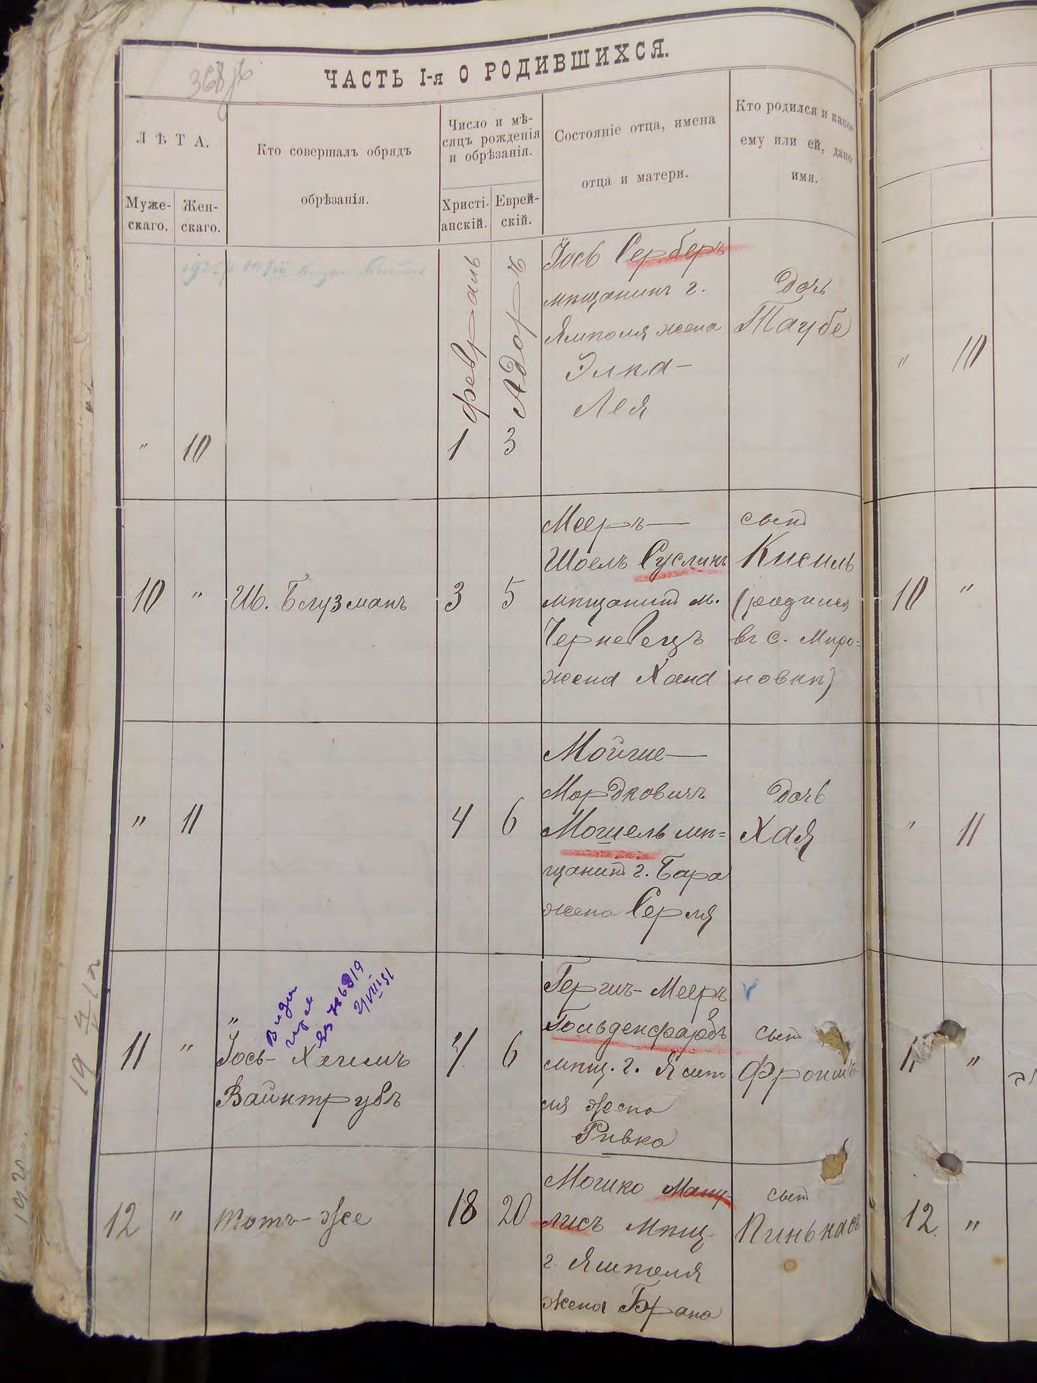 ЧАСТЬ I-я О РОДИВШИХСЯ.
ЛѢТА.
Муже-
скаго.
Жен-
скаго.
Кто совершалъ обрядъ
обрѣзанія.
Число и мѣ-
сяцъ рожденія
и обрѣзанія.
Христі-
анскій.
Еврей-
скій.
Состояніе отца, имена
отца и матери.
Кто родился и какое
ему или ей, дано
имя.
"
10
Февраль
1
Адаръ
3
Іось Серберъ
мѣщанинъ г.
Ямполя жена
Элка-
Лея
дочь
Таубе
"
10
10
"
Ш. Блузманъ
3
5
Мееръ-
Шоелъ Сусликъ
мѣщанинъ м.
Черневецъ
жена Хана
сынъ
Кисиль
(родился
въ с. Миро-
новки)
10
"
"
11
4
6
Мойше-
Мордковичъ
Мошелъ мѣ=
щанинъ г. Бара
жена Серля
дочь
Хая
"
11
11
"
"
Іось-Хаимъ
Вайнтрубъ
4
6
Гершъ-Мееръ
Гольденфарбъ
мѣщ. г. Ямпо
ля жена
Ривка
сынъ
Фроимъ
11
"
12
"
тотъ-же
18
20
Мошко Ману-
лисъ мѣщ.
г. Ямполя
жена Брана
сынъ
Пинькасъ
12
"